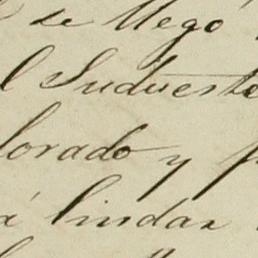 se llegó
l Sudueste
lorado y
á lindar